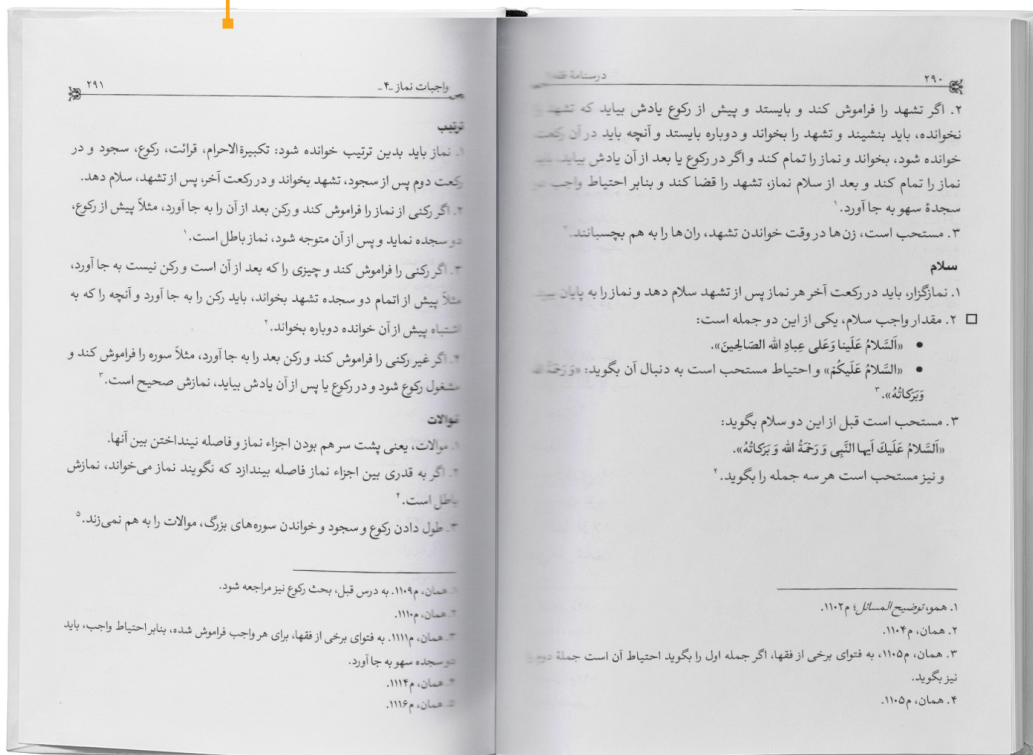 ۲۹۰
درسنامهٔ
۲. اگر تشهد را فراموش کند و بایستد و پیش از رکوع یادش بیاید که تشهد را
نخوانده، باید بنشیند و تشهد را بخواند و دوباره بایستد و آنچه باید در آن رکعت
خوانده شود، بخواند و نماز را تمام کند و اگر در رکوع یا بعد از آن یادش بیاید، باید
نماز را تمام کند و بعد از سلام نماز، تشهد را قضا کند و بنابر احتیاط واجب دو
سجدهٔ سهو به جا آورد.۱
۳. مستحب است، زن‌ها در وقت خواندن تشهد، ران‌ها را به هم بچسبانند.۲
سلام
۱. نمازگزار، باید در رکعت آخر هر نماز پس از تشهد سلام دهد و نماز را به پایان
۲. مقدار واجب سلام، یکی از این دو جمله است:
• «اَلسَّلامُ عَلَینا وَعَلی عِبادِ الله الصّالِحینَ».
• «السَّلامُ عَلَیکُمْ» و احتیاط مستحب است به دنبال آن بگوید: «وَ رَحمَةُ الله
وَبَرَکاتُهُ».۳
۳. مستحب است قبل از این دو سلام بگوید:
«اَلسَّلامُ عَلَیكَ اَیها النَّبِی وَ رَحْمَةُ الله وَ بَرَکاتُهُ».
و نیز مستحب است هر سه جمله را بگوید.۴
۱. همو، توضیح المسائل، م۱۱۰۲.
۲. همان، م۱۱۰۴.
۳. همان، م۱۱۰۵، به فتوای برخی از فقها، اگر جمله اول را بگوید احتیاط آن است جملهٔ دوم را
نیز بگوید.
۴. همان، م۱۱۰۵.
واجبات نماز ـ۴ـ
۲۹۱
ترتیب
۱. نماز باید بدین ترتیب خوانده شود: تکبیرةالاحرام، قرائت، رکوع، سجود و در
رکعت دوم پس از سجود، تشهد بخواند و در رکعت آخر، پس از تشهد، سلام دهد.
۲. اگر رکنی از نماز را فراموش کند و رکن بعد از آن را به جا آورد، مثلاً پیش از رکوع،
دو سجده نماید و پس از آن متوجه شود، نماز باطل است.۱
۳. اگر رکنی را فراموش کند و چیزی را که بعد از آن است و رکن نیست به جا آورد،
مثلاً پیش از اتمام دو سجده تشهد بخواند، باید رکن را به جا آورد و آنچه را که به
اشتباه پیش از آن خوانده دوباره بخواند.۲
۴. اگر غیر رکنی را فراموش کند و رکن بعد را به جا آورد، مثلاً سوره را فراموش کند و
مشغول رکوع شود و در رکوع یا پس از آن یادش بیاید، نمازش صحیح است.۳
موالات
۱. موالات، یعنی پشت سر هم بودن اجزاء نماز و فاصله نینداختن بین آنها.
۲. اگر به قدری بین اجزاء نماز فاصله بیندازد که نگویند نماز می‌خواند، نمازش
باطل است.۴
۳. طول دادن رکوع و سجود و خواندن سوره‌های بزرگ، موالات را به هم نمی‌زند.۵
۱. همان، م۱۱۰۹. به درس قبل، بحث رکوع نیز مراجعه شود.
۲. همان، م۱۱۱۰.
۳. همان، م۱۱۱۱. به فتوای برخی از فقها، برای هر واجب فراموش شده، بنابر احتیاط واجب، باید
دو سجده سهو به جا آورد.
۴. همان، م۱۱۱۴.
۵. همان، م۱۱۱۶.